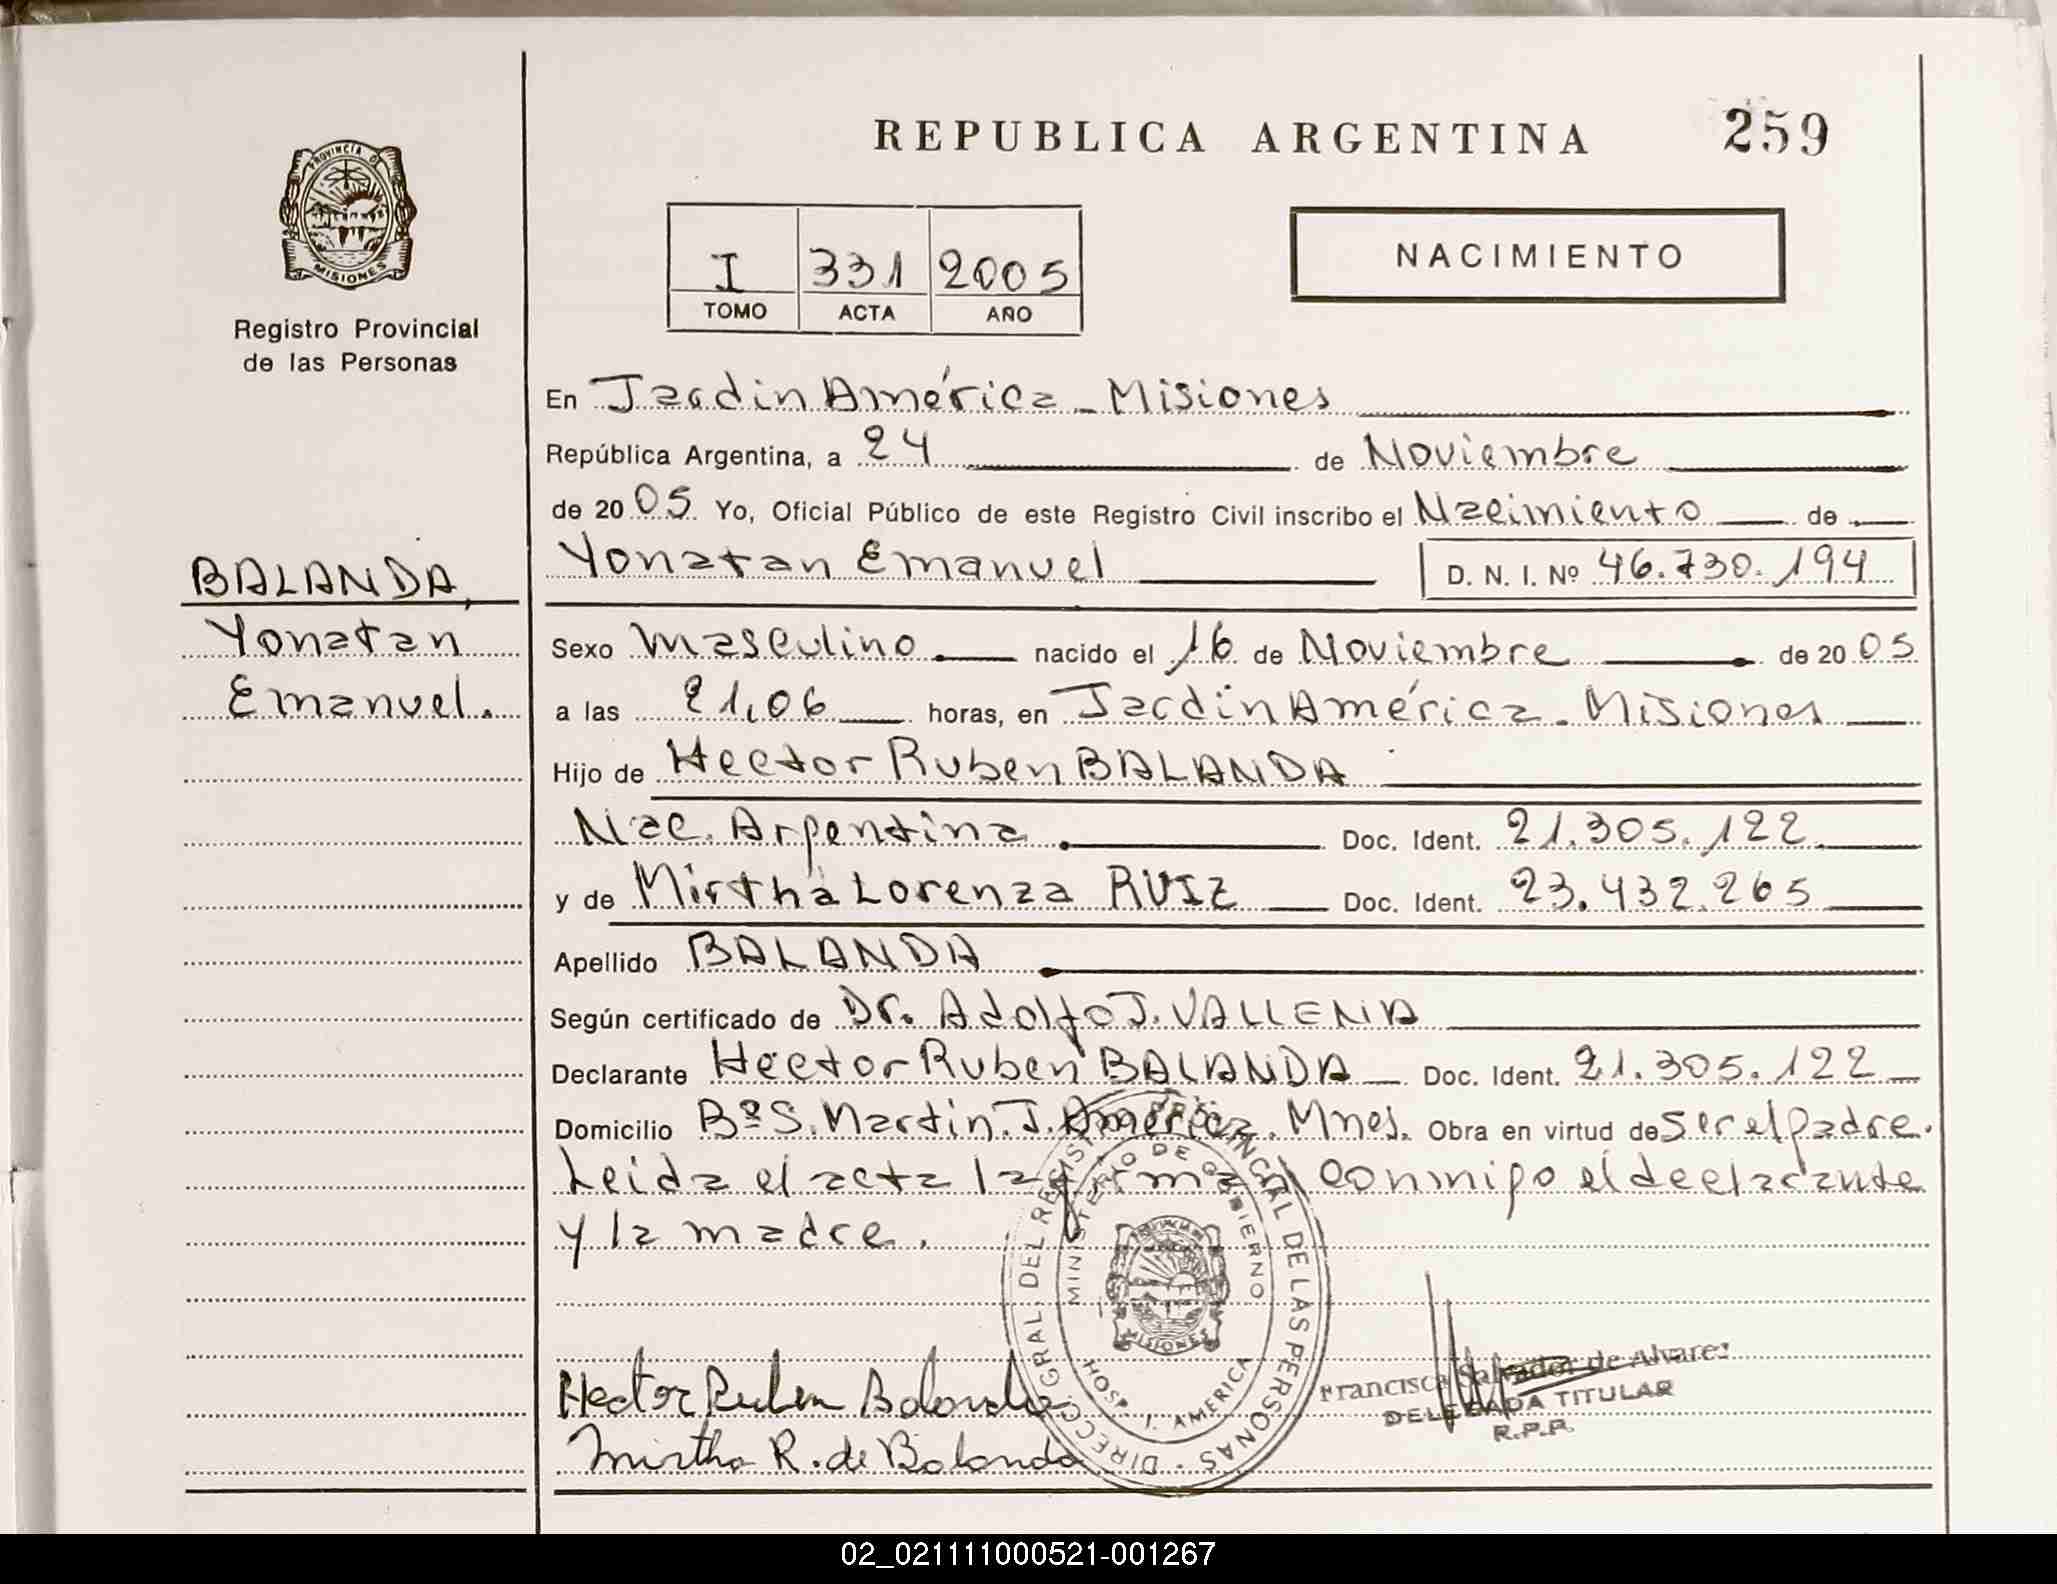 REPUBLICA ARGENTINA 259
PROVINCIA D
MISIONES
Registro Provincial
de las Personas
I 331 2005
TOMO ACTA AÑO
NACIMIENTO
En Jardin América - Misiones
República Argentina, a 24 de Noviembre
de 2005 Yo, Oficial Público de este Registro Civil inscribo el Nacimiento de
Yonatan Emanuel D. N. I. Nº 46.730.194
BALANDA,
Yonatan
Emanuel.
Sexo Masculino nacido el 16 de Noviembre de 2005
a las 21,06 horas, en Jardin América - Misiones
Hijo de Hector Ruben BALANDA
Nac. Argentina Doc. Ident. 21.305.122
y de Mirtha Lorenza RUIZ Doc. Ident. 23.432.265
Apellido BALANDA
Según certificado de Dr. Adolfo J. VALLENA
Declarante Hector Ruben BALANDA Doc. Ident. 21.305.122
Domicilio Bº S. Martin. J. América. Mnes. Obra en virtud de ser el padre.
Leida el acta la firman conmigo el declarante
y la madre.
DIRECC. GRAL. DEL REGISTRO PROVINCIAL DE LAS PERSONAS
MINISTERIO DE GOBIERNO
MISIONES
HOSP. J. AMERICA
Hector Ruben Balanda
Mirtha R. de Balanda
Francisca Salvador de Alvarez
DELEGADA TITULAR
R.P.P.
02_021111000521-001267